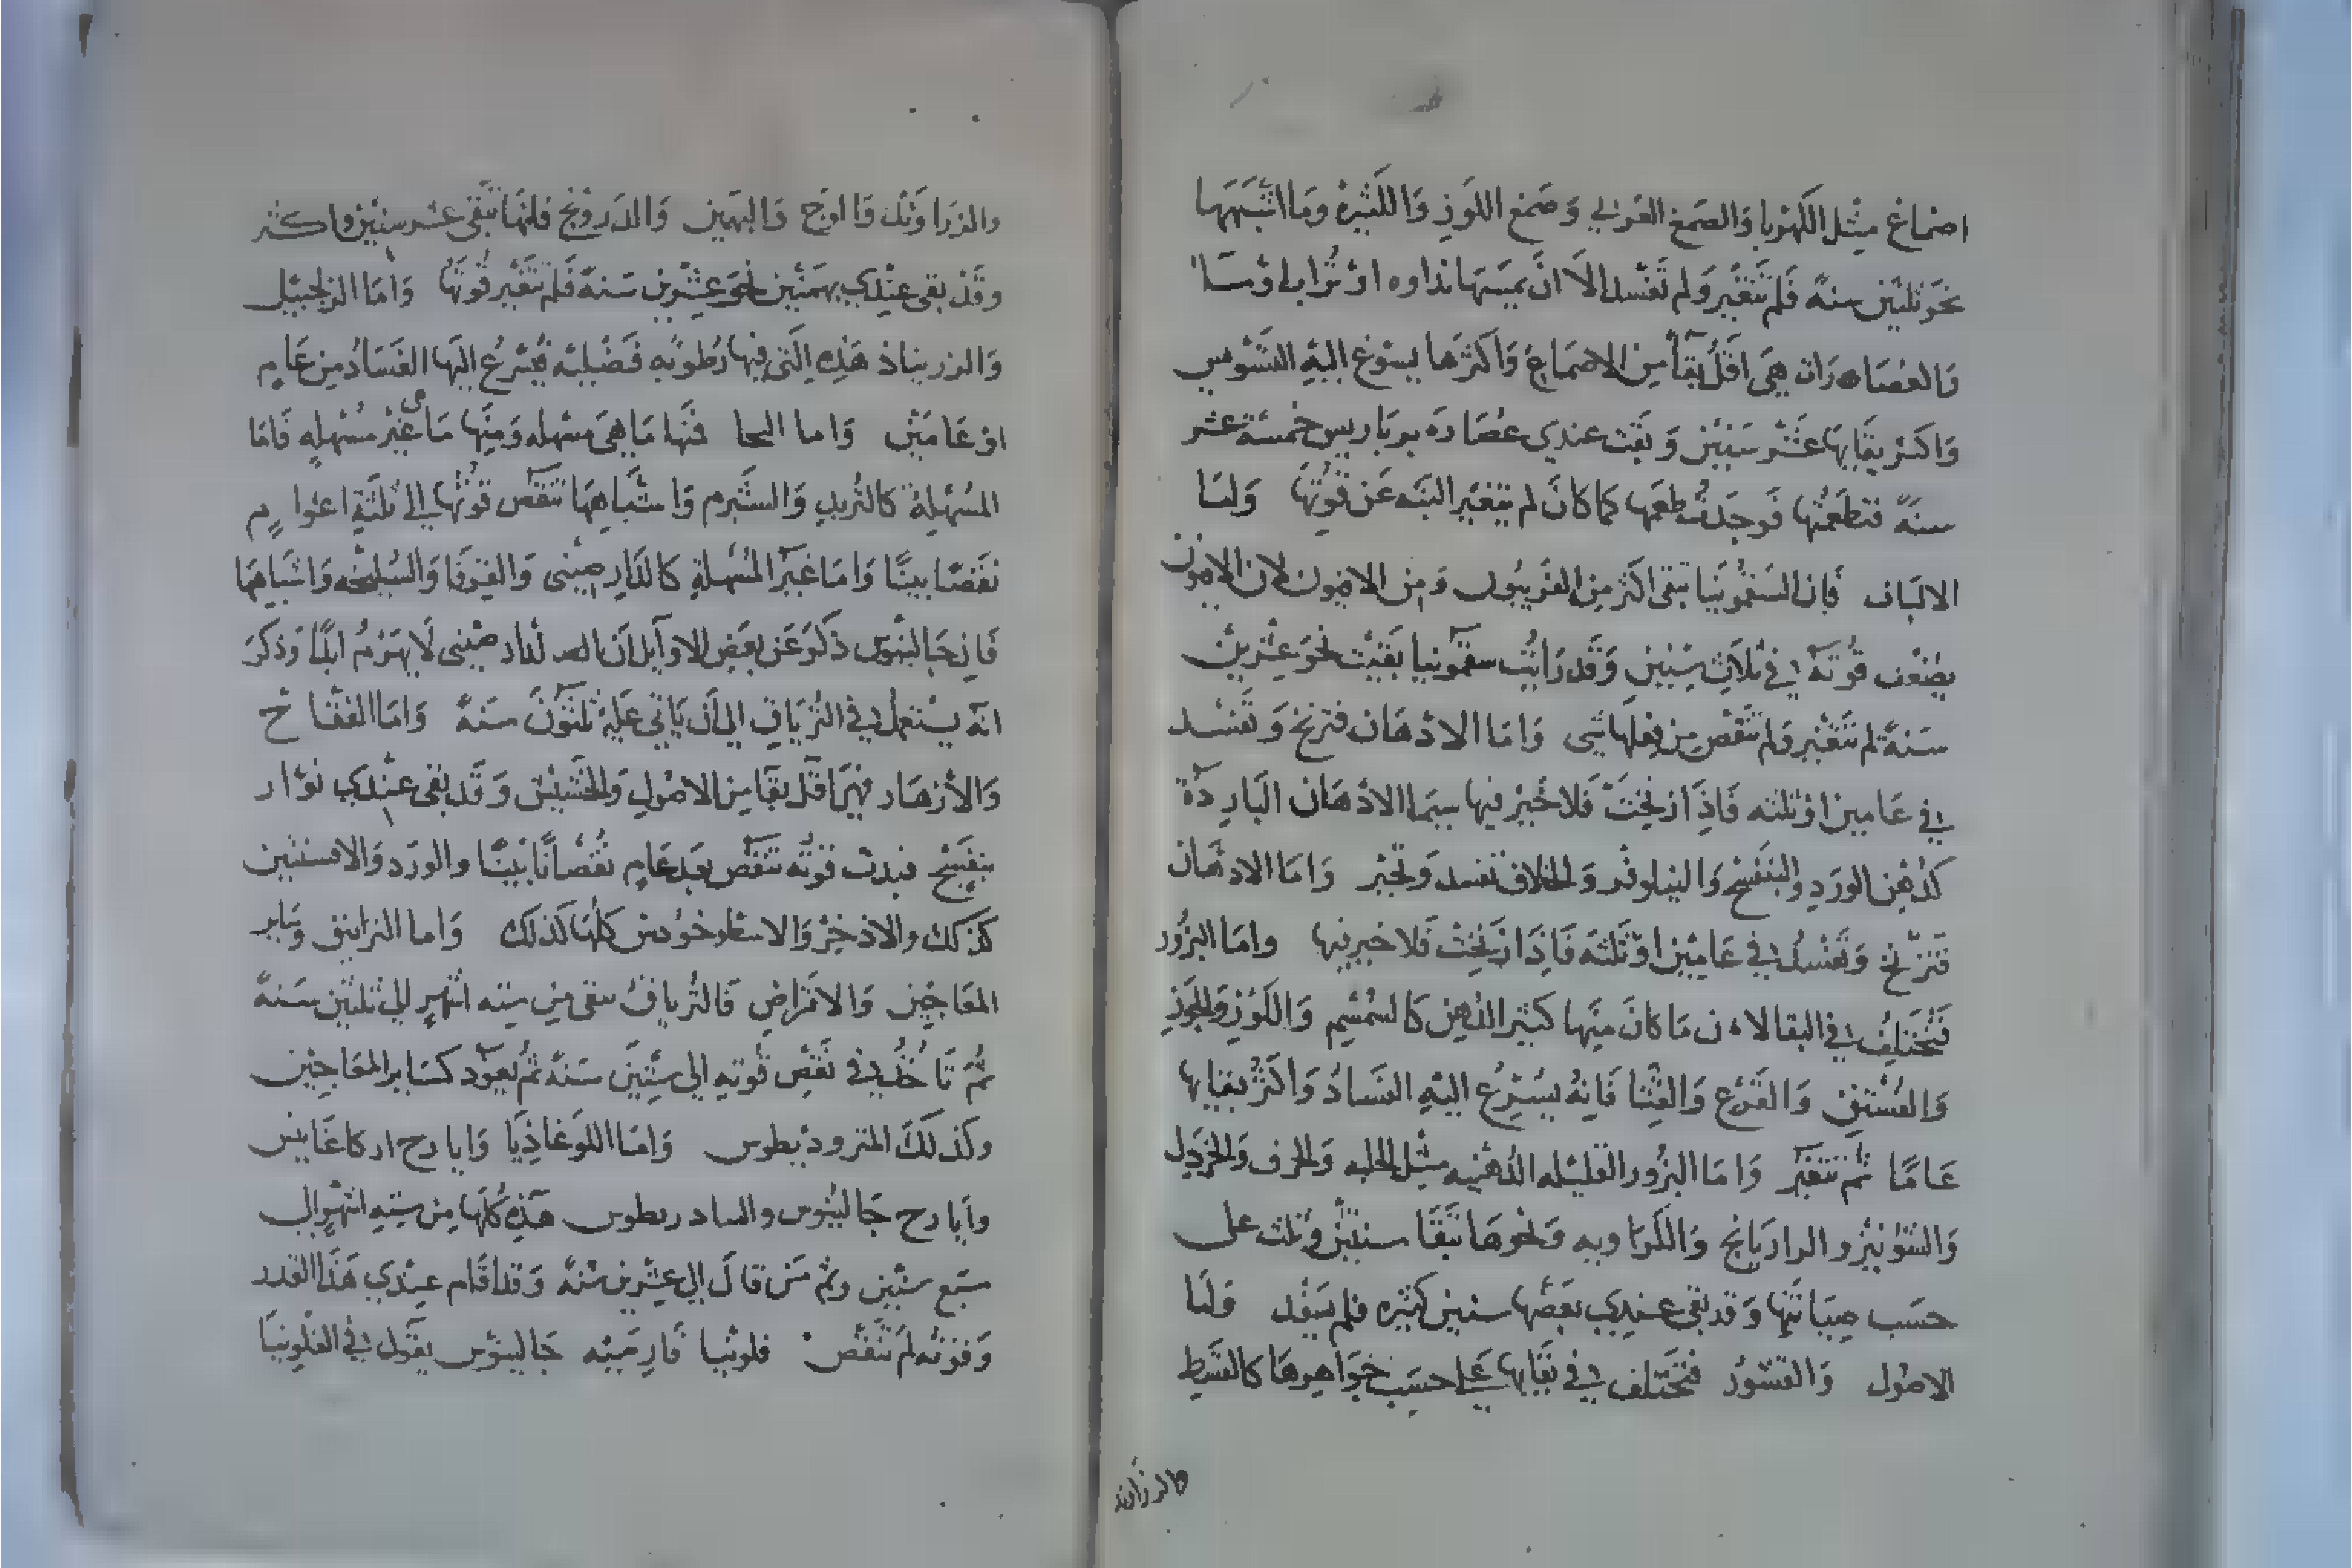 اصماغ مثل الكهربا والصمغ العربي وصمغ اللوز والكثيرة وما اشبهها
نحو ثلثين سنة فلم تتغير ولم تفسد الا ان يمسها نداوه او تراب
والعصارات هي اقل بقأ من الاصماغ واكثرها يسوع اليه التسويس
واكثر بقايها عشر سنين وبقت عندي عصارة بر باريس خمسة عشر
سنة فتطعمتها فوجدت طعمها كما كان لم يتغير البته عن قوتها واما
الالبان فان السقمونيا تبقى اكثر من الفربيون ومن الافيون لان الافيون
يضعف قوته في ثلاث سنين وقد رايت سقمونيا بقيت نحو عشرين
سنة لم تتغير ولم تنقص من فعلها شي واما الادهان فتزنخ وتفسد
في عامين او ثلثه فاذا زنخت فلا خير فيها سيما الادهان الباردة
كدهن الورد والبنفسج والنيلوفر والخلاف تفسد وتخبر واما الادهان
فتزنخ وتفسد في عامين او ثلثه فاذا زنخت فلا خير فيها واما البزور
فتختلف في البقا لان ما كان منها كثير الدهن كالسمسم واللوز والجوز
والفستق والقرع والقثا فانه يسرع اليه الفساد واكثر بقايها
عاما ثم تتغير واما البزور القليله الدهنيه مثل الحلبه والحرف والخردل
والشونيز والرازيانج والكراويه ونحوها تبقا سنتين وثلث على
حسب صيانتها وقد بقى عندي بعضها سنين كثيره فلم يتغد واما
الاصول والقشور فتختلف في بقايها على حسب جواهرها كالقسط
كالزراوند
والزراوند والوج والبهمين والدرونج فانها تبقى عشر سنين واكثر
وقد بقى عندي بهمنين نحو عشرين سنة فلم تتغير قوتها واما الزنجبيل
والزرنباذ هذه التى فيها رطوبه فضليه يسرع اليها الفساد من عام
او عامين واما اللحا فمنها ما هي مسهله ومنها ما هى غير مسهله فاما
المسهلة كالتربد والشبرم واشباهها تنقص قوتها الى ثلثة اعوام
نقصا بينا واما غير المسهلة كالدار صينى والقرفا والسليخه واشباهها
فان جالينوس ذكر عن بعض الاوايل ان الدار صينى لا يهرم ابدا وذكر
انه يستعمل في الترياق الى ان ياتي عليه ثلثون سنة واما الفقاح
والازهار فهى اقل بقا من الاصول والحشيش وقد بقى عندي نوار
بنفسج فبدت قوته تنقص بعد عام نقصانا بينا والورد والافسنتين
كذلك والاذخر والاسطوخودس كلها كذلك واما الترايق وساير
المعاجين والاقراص فالترياق يبقى من سته اشهر الى ثلثين سنة
ثم تاخذ في نقص قوته الى ستين سنة ثم يعود كساير المعاجين
وكذلك المثروديطوس واما اللوغاذيا وايارح اركاغانيس
وايارح جالينوس والتيادريطوس هذه كلها من سته اشهر الى
سبع سنين وثم من قال الى عشرين سنة وقد اقام عندي هذا القدر
وقوته لم تنقص فلونيا فارسيه جالينوس يقول في الفلونيا